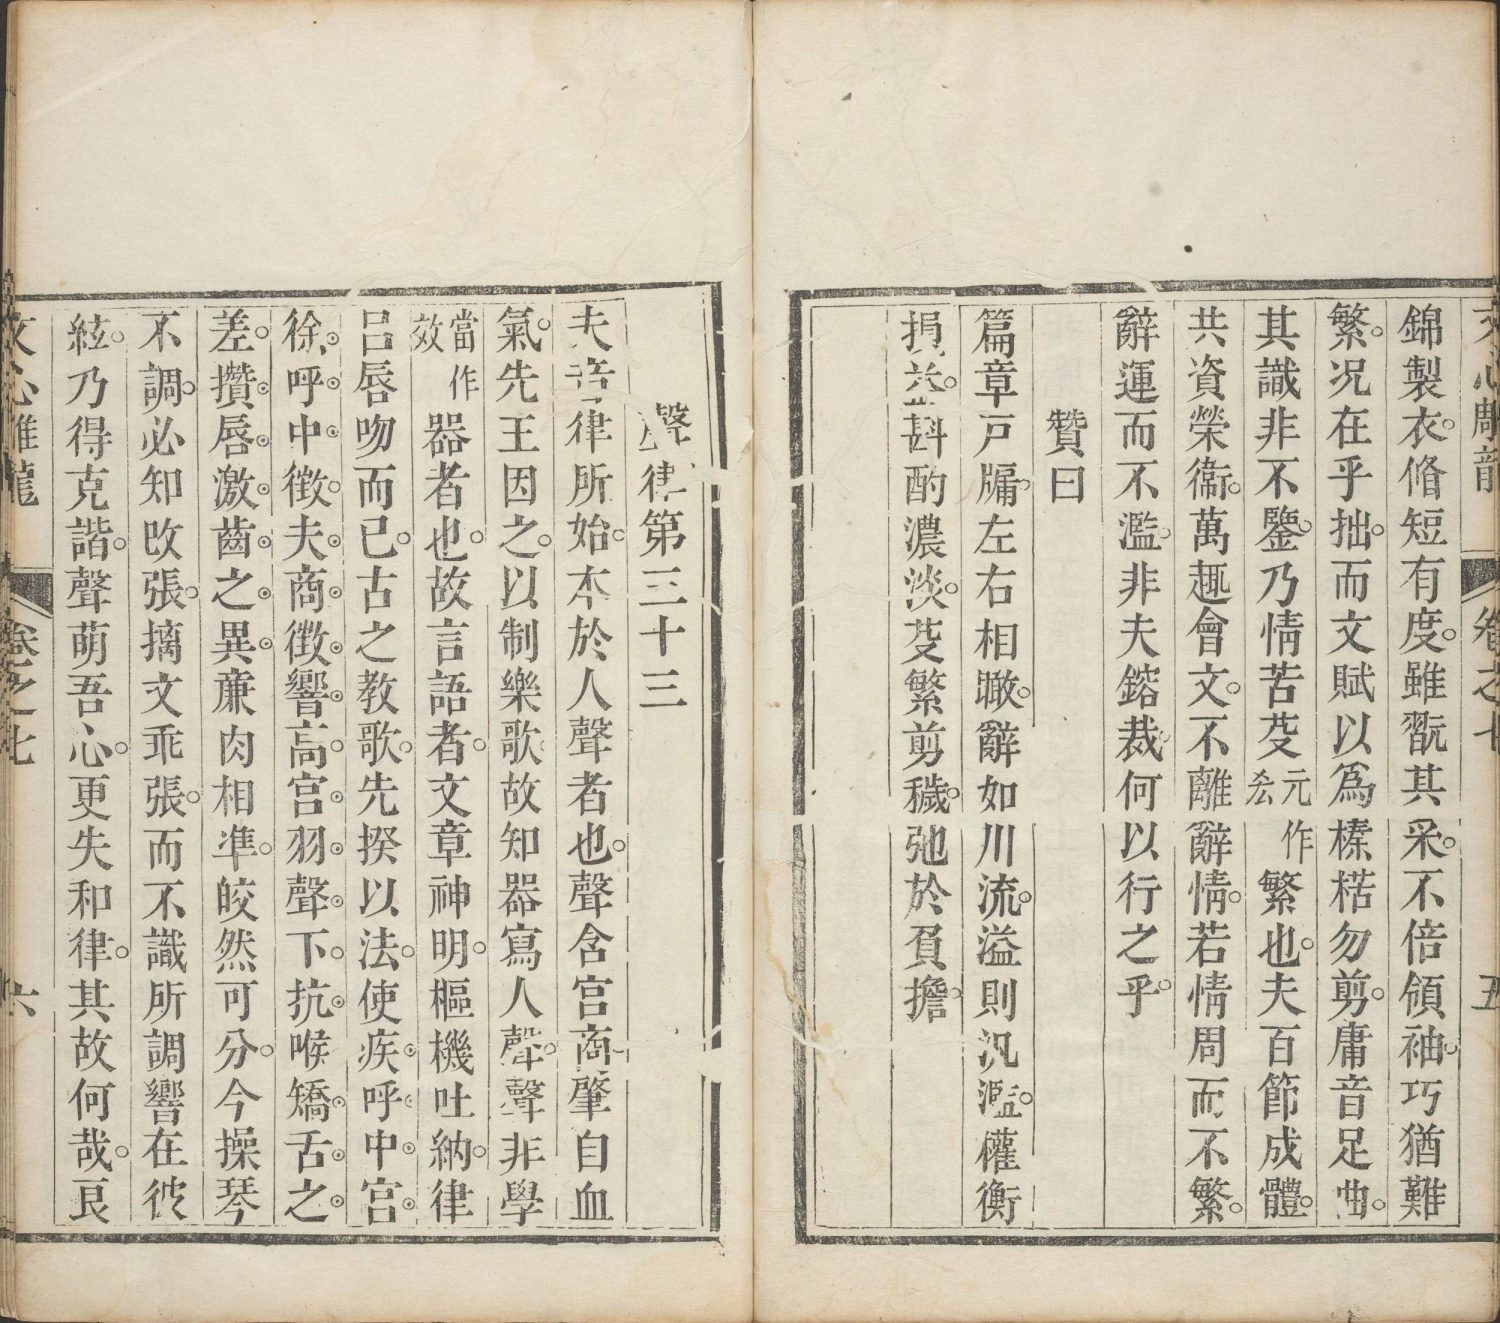 文心雕龍 卷之七 五
錦製衣。脩短有度。雖翫其采。不倍領袖。巧猶難
繁。况在乎拙。而文賦以爲榛楛勿剪。庸音足曲。
其識非不鑒。乃情苦芟元作㕘繁也。夫百節成體。
共資榮衞。萬趣會文。不離辭情。若情周而不繁。
辭運而不濫。非夫鎔裁。何以行之乎。
贊曰
篇章戸牖。左右相瞰。辭如川流。溢則汎濫。權衡
損益。斟酌濃淡。芟繁剪穢。弛於負擔。
聲律第三十三
夫音律所始。本於人聲者也。聲含宫商。肇自血
氣。先王因之。以制樂歌。故知器寫人聲。聲非學
當作效器者也。故言語者。文章神明。樞機吐納。律
吕唇吻而已。古之教歌。先揆以法。使疾呼中宫。
徐呼中徴。夫商徴響高。宫羽聲下。抗喉矯舌之
差。攢唇激齒之異。亷肉相凖。皎然可分。今操琴
不調。必知改張。摛文乖張。而不識所調。響在彼
絃。乃得克諧。聲萌吾心。更失和律。其故何哉。良
文心雕龍 卷之七 六